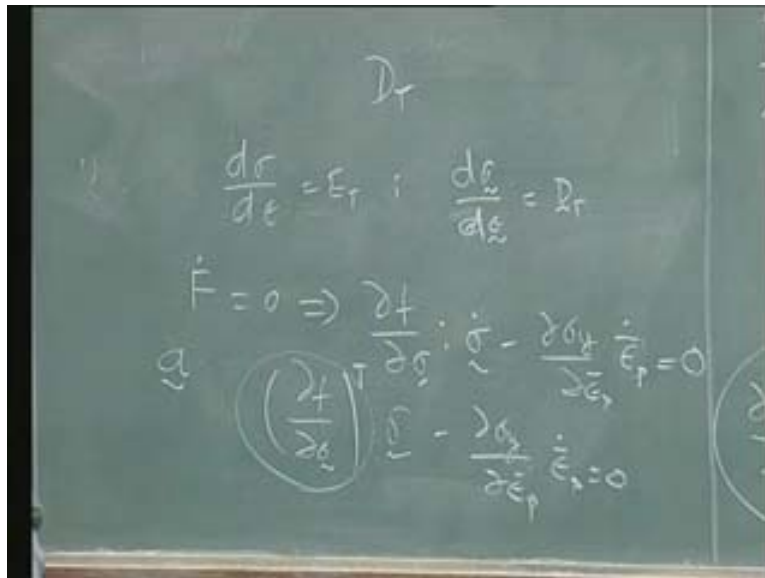 D_T
dσ/dε = E_T ; dσ̰/dε̰ = D̰_T
Ḟ = 0 ⇒ ∂f/∂σ̰ : σ̰̇ - ∂σ_y/∂ε̄_p ε̄̇_p = 0
a̰
(∂f/∂σ̰)^T σ̰̇ - ∂σ_y/∂ε̄_p ε̄̇_p = 0